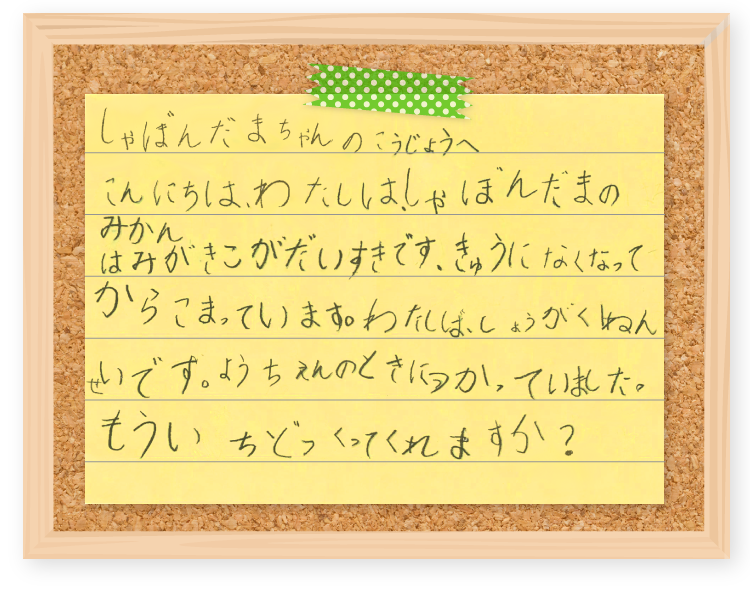 しゃぼんだまちゃんのこうじょうへ
こんにちは、わたしは、しゃぼんだまの
みかん
はみがきこがだいすきです、きゅうになくなって
からこまっています。わたしは、しょうがくねん
せいです。ようちえんのときにつかっていました。
もういちどつくってくれますか?